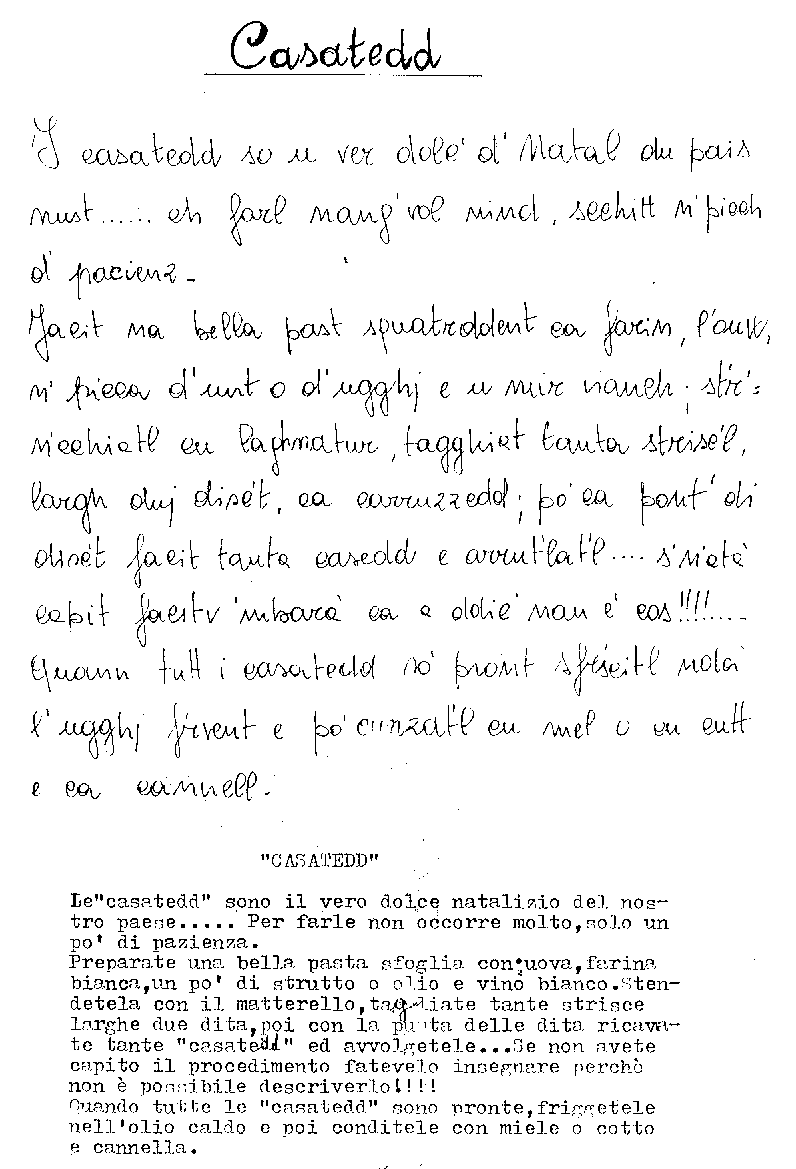 Casatedd
I casatedd so u ver dolc' d' Natal du pais
nust...... ch farl nang' vol nind, sechitt n' piech
d' pacienz -
Facit na bella past squatrddent ca farin, l'ouv,
n' piecca d'unt o d'ugghj e u mir vianch; str'=
n'cchiatl cu laghnatur, tagghiat tanta strisc'l,
largh duj disc't, ca carruzzedd; po' ca pont' di
disc't facit tanta casedd e arrut'lat'l .... s' n'atà
capit facitv 'mbarà ca a ddic' nan e' cos!!!!....
Quann tutt i casatedd so' pront sfriscitl nda
l'ugghj frvent e po' cunzat'l cu mel o cu cutt
e ca cannell.
"CASATEDD"
Le"casatedd" sono il vero dolce natalizio del nos-
tro paese..... Per farle non occorre molto,solo un
po' di pazienza.
Preparate una bella pasta sfoglia con uova,farina
bianca,un po' di strutto o olio e vino bianco.Sten-
detela con il matterello,tagliate tante strisce
larghe due dita,poi con la punta delle dita ricava-
te tante "casatedd" ed avvolgetele...Se non avete
capito il procedimento fatevelo insegnare perchè
non è possibile descriverlo!!!!
Quando tutte le "casatedd" sono pronte,friggetele
nell'olio caldo e poi conditele con miele o cotto
e cannella.